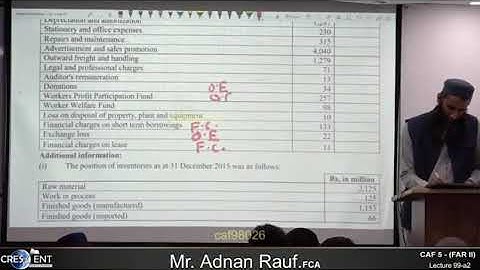 Depreciation and amortization
Stationery and office expenses 230
Repairs and maintenance 315
Advertisement and sales promotion 4,040
Outward freight and handling 1,279
Legal and professional charges 71
Auditor's remuneration 13
Donations O.E 34
Workers Profit Participation Fund 257
Worker Welfare Fund 98
Loss on disposal of property, plant and equipment 10
Financial charges on short term borrowings F.C. 133
Exchange loss O.E 22
Financial charges on lease F.C. 11
Additional information:
(i) The position of inventories as at 31 December 2015 was as follows:
Rs. in million
Raw material 2,125
Work in process 125
Finished goods (manufactured) 1,153
Finished goods (imported) 66
caf98026
CRESCENT
Mr. Adnan Rauf.FCA
CAF 5 - (FAR II)
Lecture 99-a2